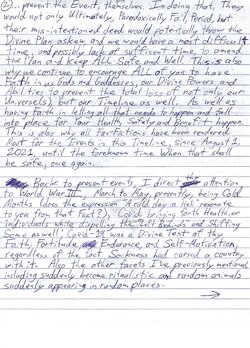 ②... prevent the Event, themselves. In doing that, They
would not only Ultimately, Paradoxically Fail, Period, but
their mis-intentioned deed would potentially throw the
Divine Plan askew and we would have a most difficult
time, and possibly lack of sufficient time, to amend
the Plan and Keep ALL Safe and Well. This is also
why we continue to encourage ALL of you to have
Faith in us Gods and Goddesses, our Divine Powers and
Abilities to prevent the Total loss of not only our
Universe(s) but our Timeline as well. As well as
having faith in telling all that needs to happen and fall
into place for your Health, Safety and Benefit happen.
This is also why all Fan-Fictions have been rendered
Moot for the Events in this Timeline, since August 1,
2021 until the foreknown time When that shall
be safe, once again.
Back to present events, I direct the attention
to World War III. March to May, presently, being Cold
Months (does the expression "A cold day in Hell" resonate
to you from that Fact?), Covid bringing forth Health in
individuals while dispelling the Self Behinds and Shifting
Some as well; Covid-19 was a Divine Test of Thy
Faith, Fortitude, Endurance, and Self-Motivation,
regardless of the fact Sickness had carried a country
with it. Also the other facets I've previously mentioned
including suddenly become ritualistic and random animals
suddenly appearing in random places-